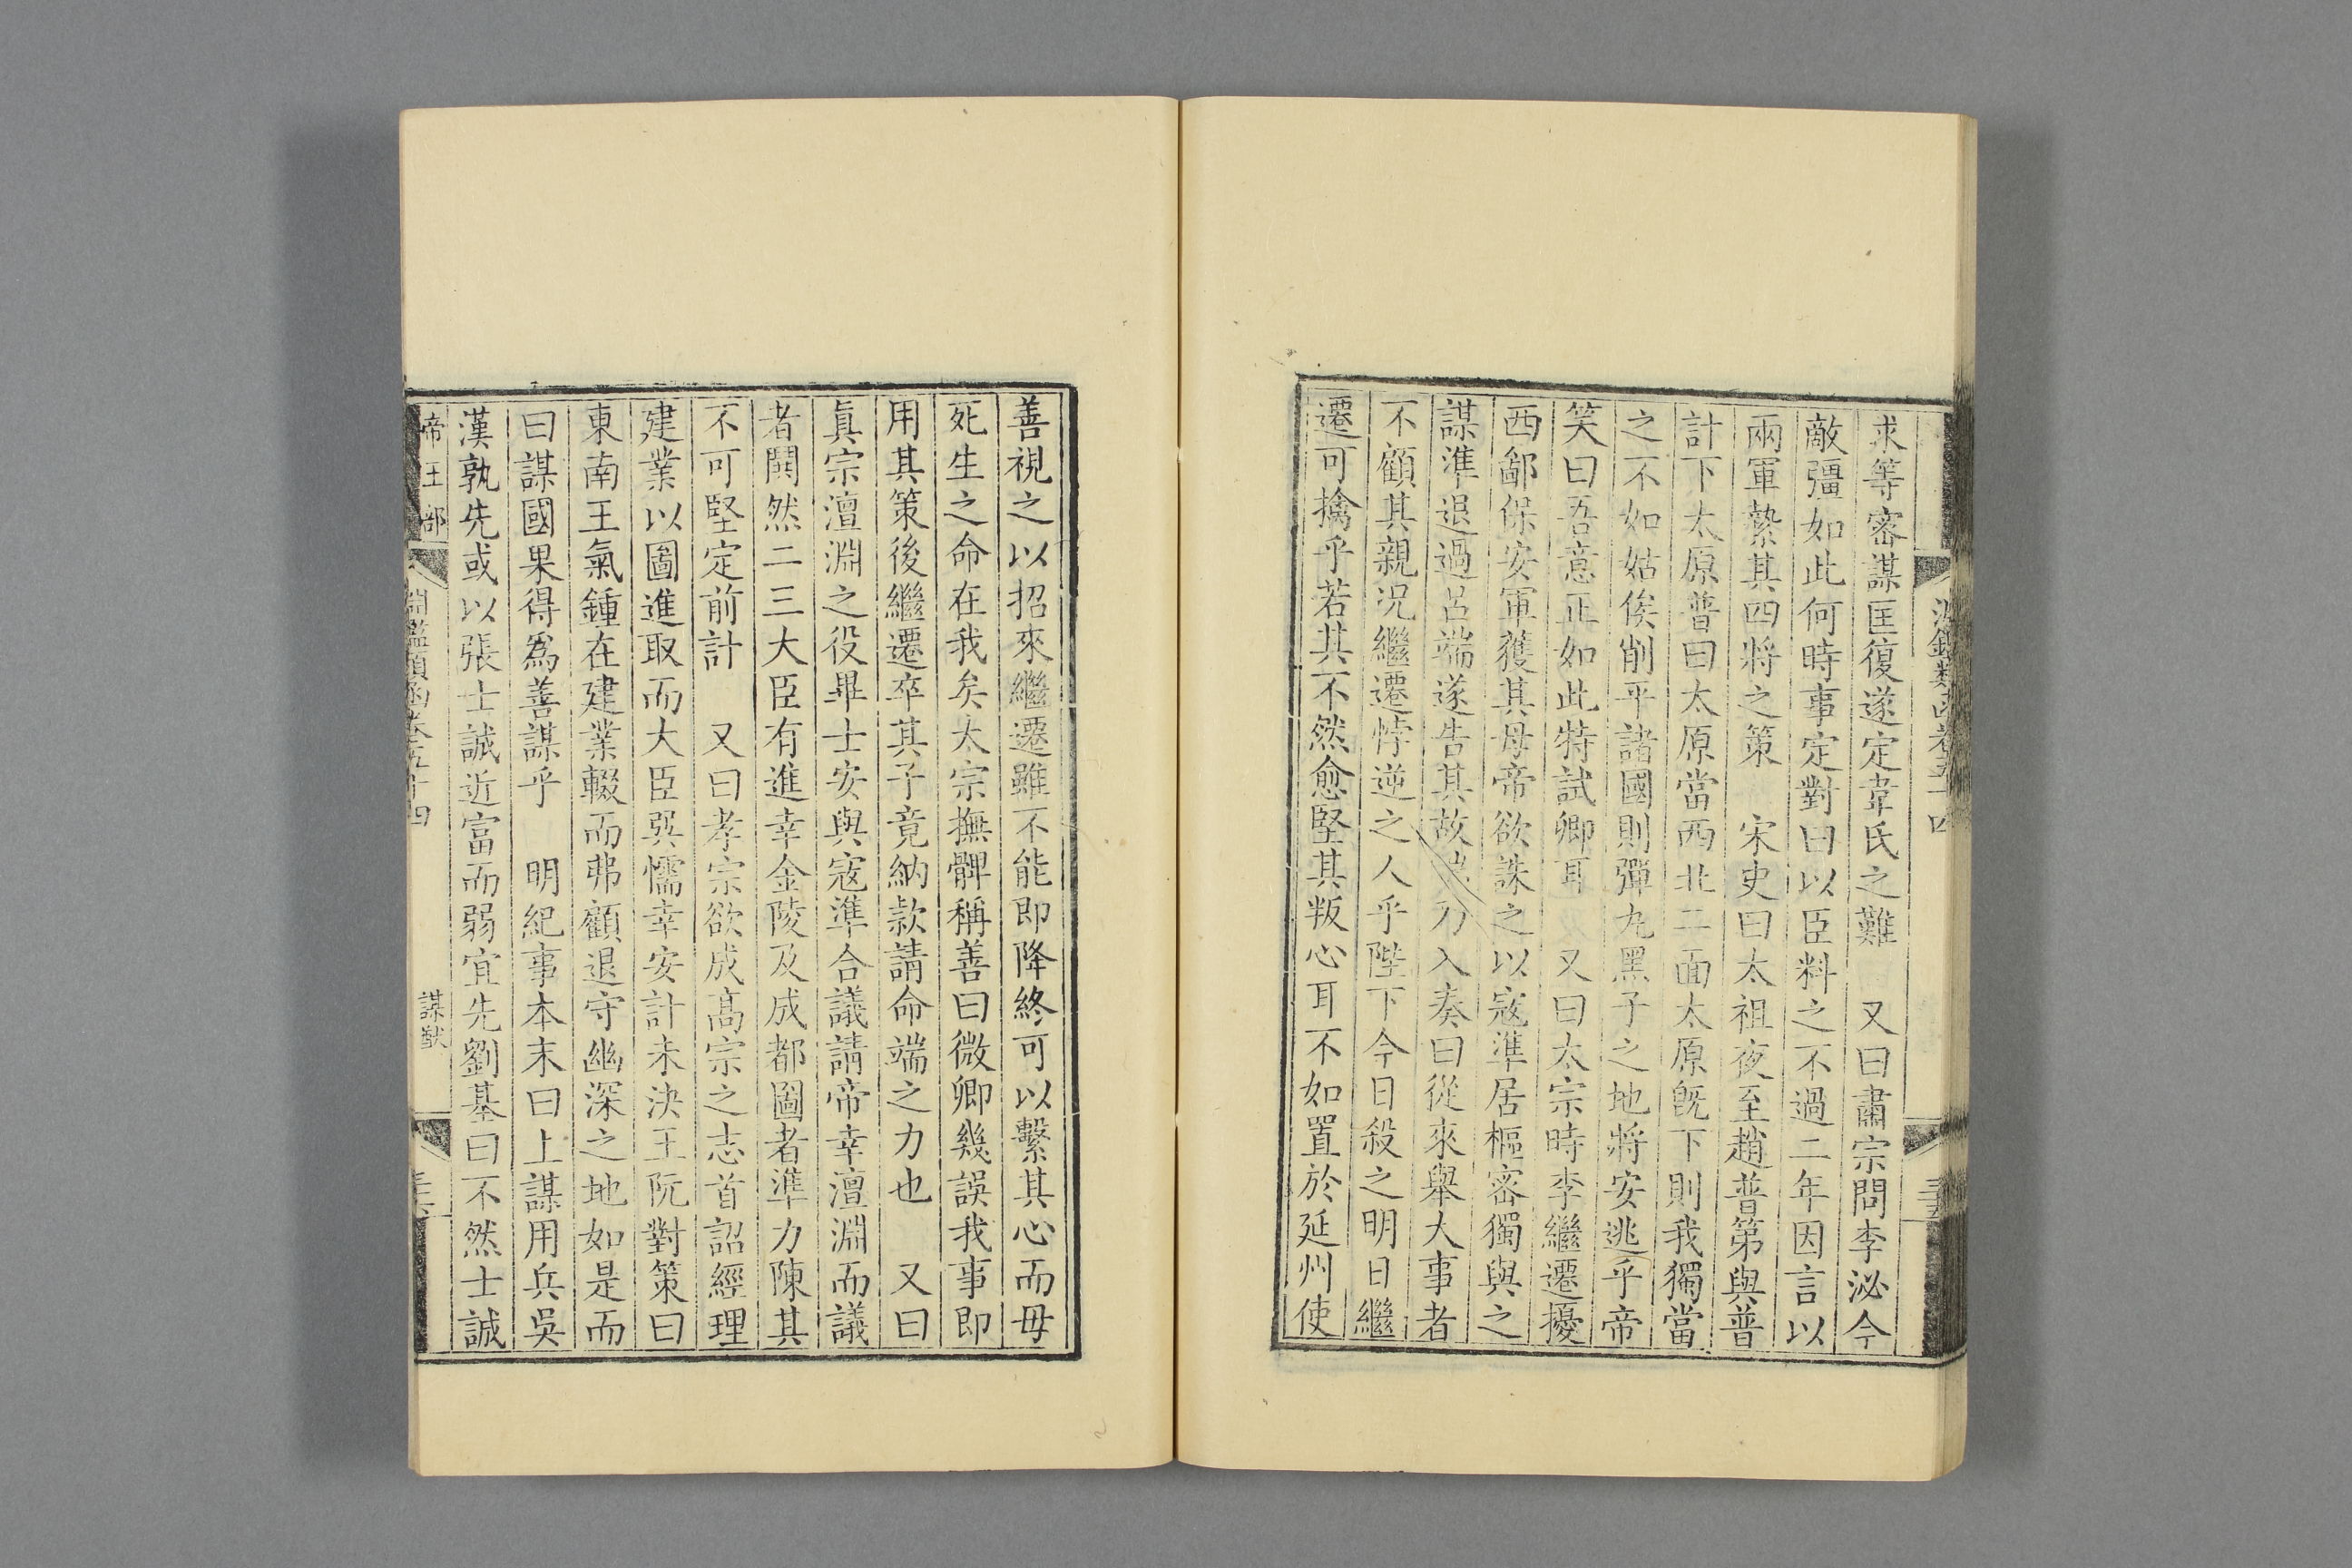 求等密謀匡復遂定韋氏之難　又曰肅宗問李泌今
敵彊如此何時事定對曰以臣料之不過二年因言以
兩軍縶其四將之策　宋史曰太祖夜至趙普第與普
計下太原普曰太原當西北二面太原旣下則我獨當
之不如姑俟削平諸國則彈丸黑子之地將安逃乎帝
笑曰吾意正如此特試卿耳　又曰太宗時李繼遷擾
西鄙保安軍獲其母帝欲誅之以寇準居樞密獨與之
謀準退過呂端遂告其故端乃入奏曰從來舉大事者
不顧其親况繼遷悖逆之人乎陛下今日殺之明日繼
遷可擒乎若其不然愈堅其叛心耳不如置於延州使
淵鑑類函卷五十四
三十五
善視之以招來繼遷雖不能即降終可以繫其心而毋
死生之命在我矣太宗撫髀稱善曰微卿幾誤我事即
用其策後繼遷卒其子竟納款請命端之力也　又曰
眞宗澶淵之役畢士安與寇準合議請帝幸澶淵而議
者鬨然二三大臣有進幸金陵及成都圖者準力陳其
不可堅定前計　又曰孝宗欲成高宗之志首詔經理
建業以圖進取而大臣巽懦幸安計未決王阮對策曰
東南王氣鍾在建業輟而弗顧退守幽深之地如是而
曰謀國果得爲善謀乎　明紀事本末曰上謀用兵吳
漢孰先或以張士誠近富而弱宜先劉基曰不然士誠
帝王部
淵鑑類函卷五十四
謀猷